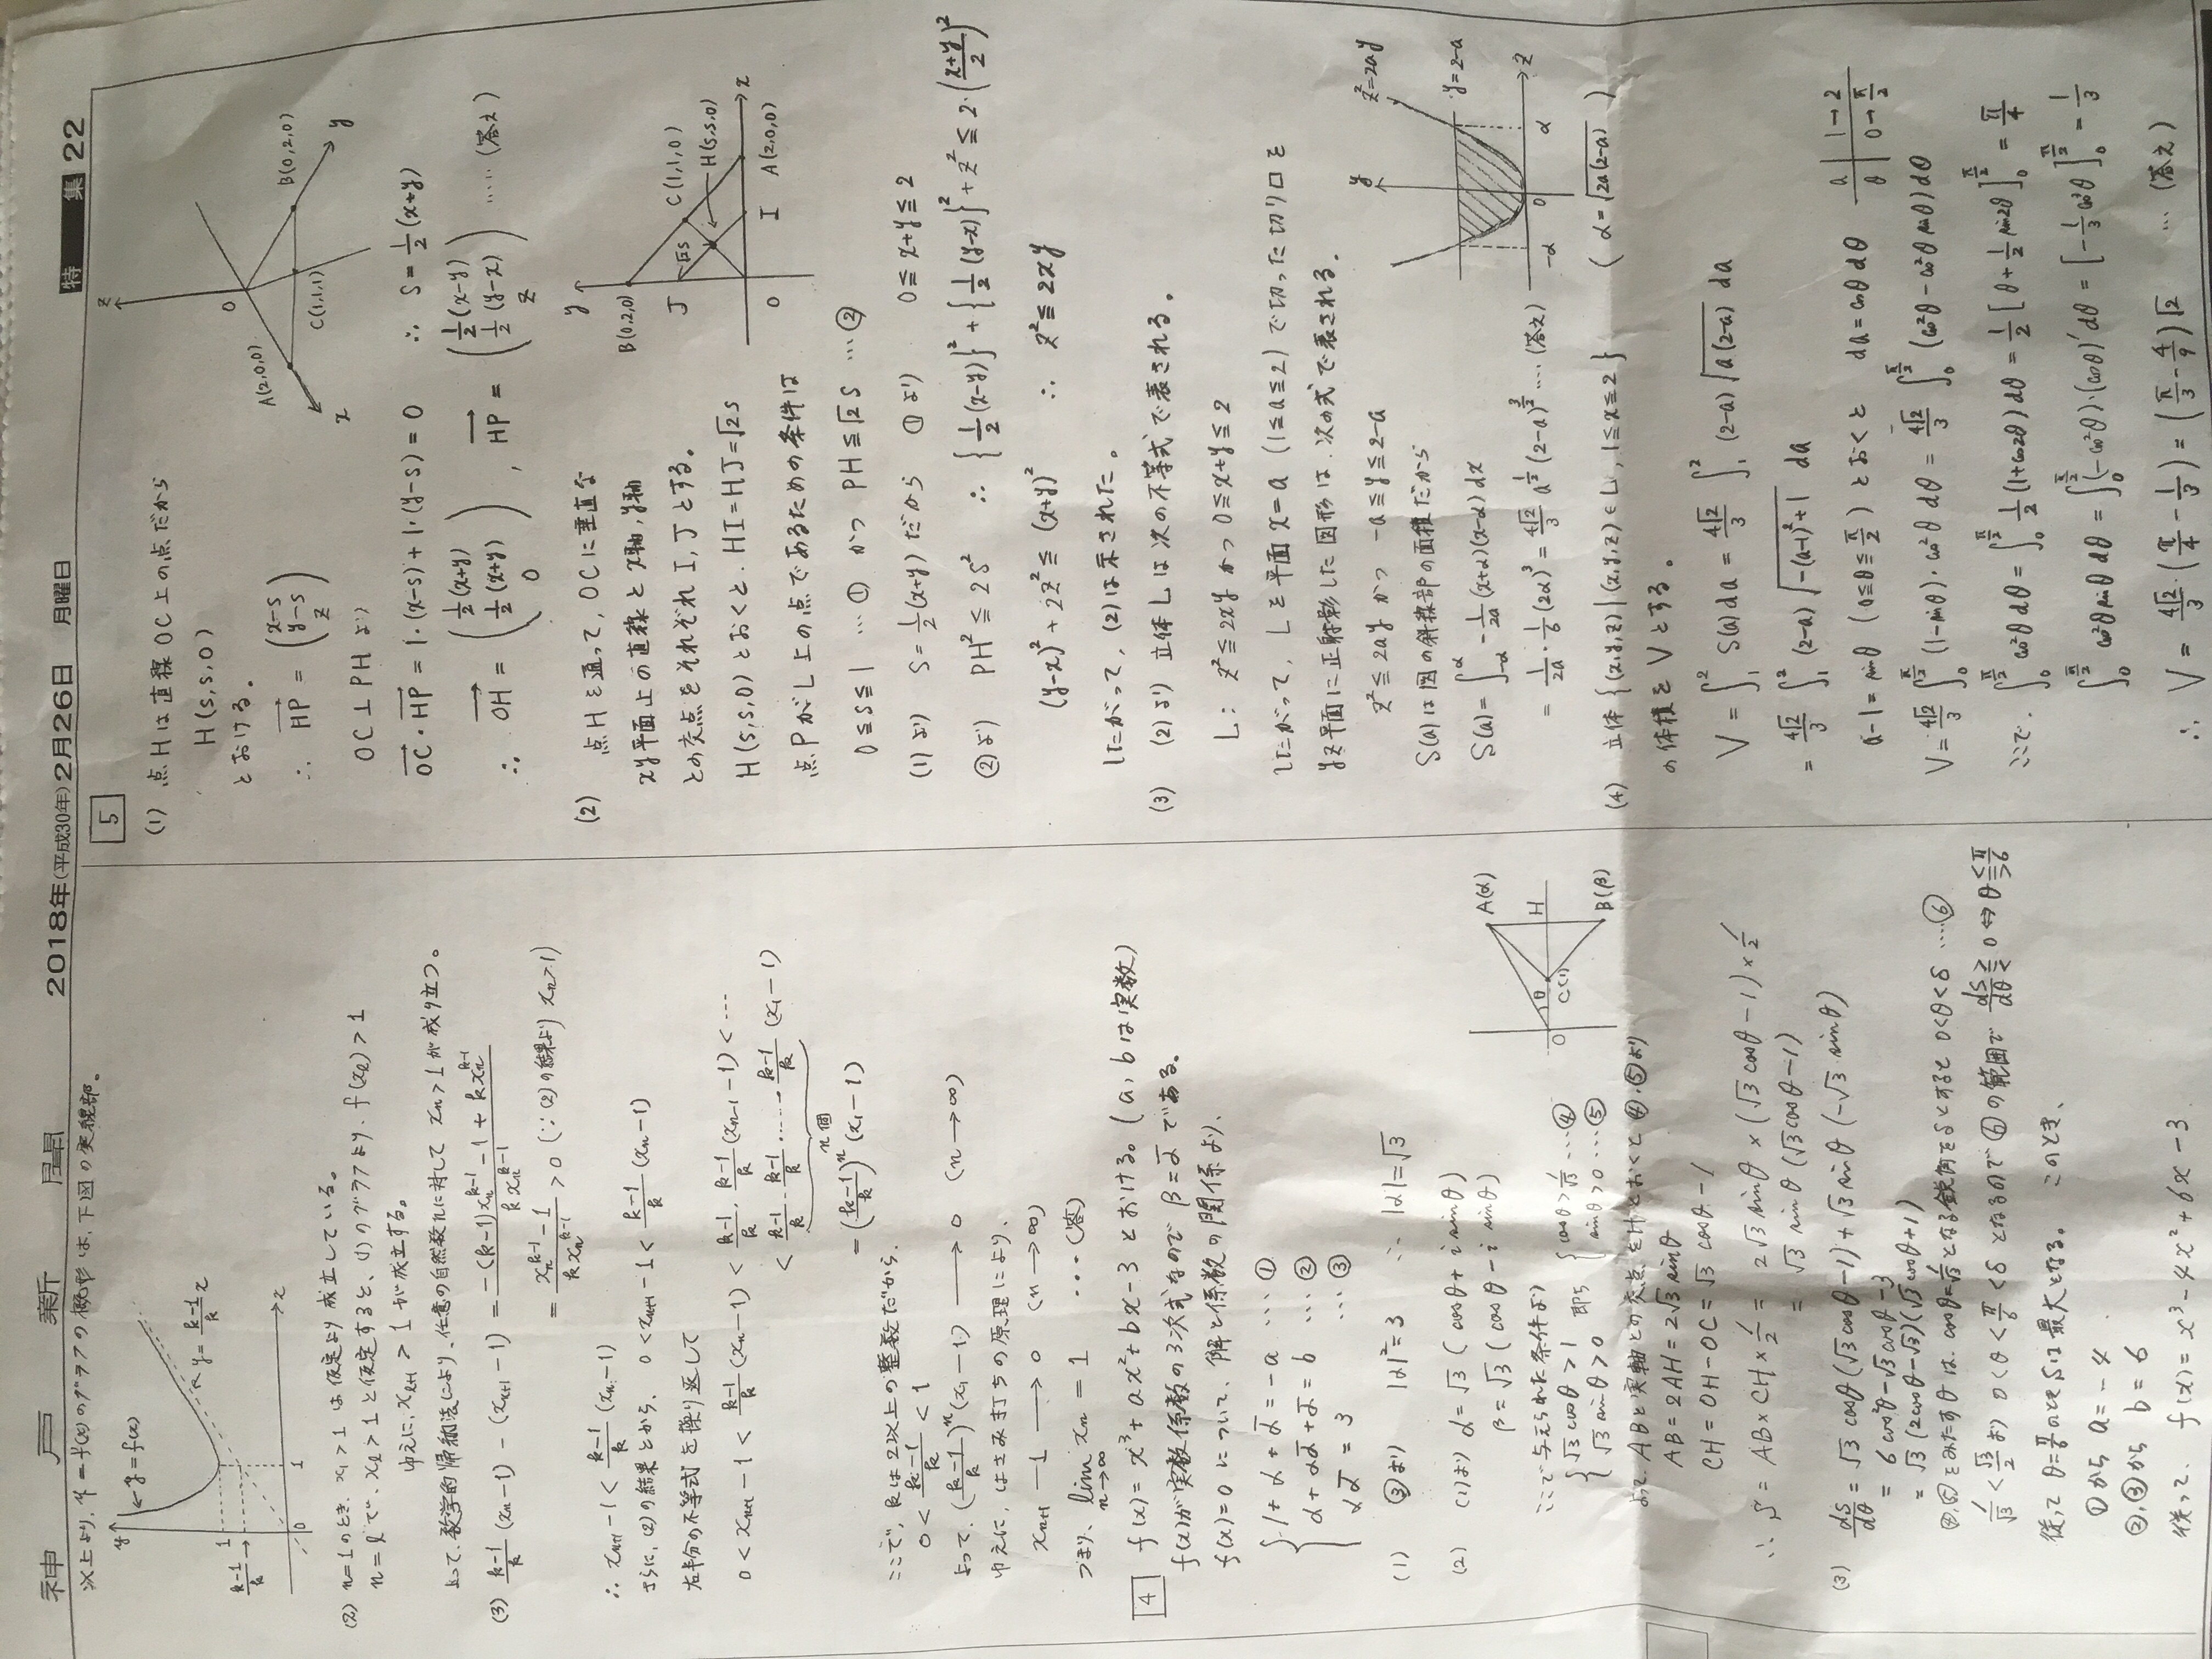 神戸新聞
2018年(平成30年)2月26日 月曜日
特集 22
※上より, y=f(x)のグラフの概形は、下図の実線部。
y
y=f(x)
y=\frac{k-1}{k}x
1
\frac{k-1}{k}
0
1
x
(2) n=1のとき, x₁>1は仮定より成立している。
n=lで, x_l>1と仮定すると, (1)のグラフより, f(x_l)>1
ゆえに, x_{l+1}>1が成立する。
よって, 数学的帰納法により, 任意の自然数nに対して x_n>1が成り立つ。
(3) \frac{k-1}{k}(x_n-1)-(x_{n+1}-1)=\frac{-(k-1)x_n^{k-1}-1+kx_n^{k-1}}{kx_n^{k-1}}
=\frac{x_n^{k-1}-1}{kx_n^{k-1}}>0 (∵(2)の結果より x_n>1)
∴ x_{n+1}-1<\frac{k-1}{k}(x_n-1)
さらに, (2)の結果とから, 0<x_{n+1}-1<\frac{k-1}{k}(x_n-1)
右半分の不等式を繰り返して
0<x_{n+1}-1<\frac{k-1}{k}(x_n-1)<\frac{k-1}{k}・\frac{k-1}{k}(x_{n-1}-1)<…
<\frac{k-1}{k}・\frac{k-1}{k}・……・\frac{k-1}{k}(x₁-1)
n個
=(\frac{k-1}{k})^n(x₁-1)
ここで, kは2以上の整数だから,
0<\frac{k-1}{k}<1
よって, (\frac{k-1}{k})^n(x₁-1)→0 (n→∞)
ゆえに, はさみ打ちの原理により,
x_{n+1}-1→0 (n→∞)
つまり, \lim_{n→∞}x_n=1 …(答)
4 f(x)=x³+ax²+bx-3とおける。(a,bは実数)
f(x)が実数係数の3次式なので β=\bar{α}である。
f(x)=0について, 解と係数の関係より,
1+α+\bar{α}=-a …①
α+α\bar{α}+\bar{α}=b …②
α\bar{α}=3 …③
(1) ③より |α|²=3 ∴ |α|=√3
(2) (1)より α=√3(cosθ+i sinθ)
β=√3(cosθ-i sinθ)
ここで与えられた条件より
√3cosθ>1 即ち cosθ>\frac{1}{√3} …④
√3sinθ>0 sinθ>0 …⑤
A(α)
H
θ
O
C(1)
B(β)
よって, ABと実軸との交点をHとおくと④,⑤より
AB=2AH=2√3sinθ
CH=OH-OC=√3cosθ-1
∴ S=AB×CH×\frac{1}{2}=2√3sinθ×(√3cosθ-1)×\frac{1}{2}
=√3sinθ(√3cosθ-1)
(3) \frac{dS}{dθ}=√3cosθ(√3cosθ-1)+√3sinθ(-√3sinθ)
=6cos²θ-√3cosθ-3
=√3(2cosθ-√3)(√3cosθ+1)
④,⑤をみたすθは, cosθ=\frac{1}{√3}となる鋭角をδとすると 0<θ<δ …⑥
\frac{1}{√3}<\frac{√3}{2}より 0<\frac{π}{6}<δとなるので⑥の範囲で \frac{dS}{dθ}⋛0⇔θ⋚\frac{π}{6}
従って θ=\frac{π}{6}のときSは最大となる。このとき,
①から a=-4
②,③から b=6
従って, f(x)=x³-4x²+6x-3
5
(1) 点Hは直線OC上の点だから
H(s,s,0)
とおける。
∴ \overrightarrow{HP}=\begin{pmatrix}x-s\\y-s\\z\end{pmatrix}
OC⊥PHより
\overrightarrow{OC}・\overrightarrow{HP}=1・(x-s)+1・(y-s)=0 ∴ s=\frac{1}{2}(x+y)
∴ \overrightarrow{OH}=\begin{pmatrix}\frac{1}{2}(x+y)\\\frac{1}{2}(x+y)\\0\end{pmatrix}, \overrightarrow{HP}=\begin{pmatrix}\frac{1}{2}(x-y)\\\frac{1}{2}(y-x)\\z\end{pmatrix} ……(答え)
z
O
A(2,0,0)
B(0,2,0)
C(1,1,1)
x
y
(2) 点Hを通って, OCに垂直な
xy平面上の直線とx軸,y軸
との交点をそれぞれI,Jとする。
H(s,s,0)とおくと, HI=HJ=√2s
点PがL上の点であるための条件は
0≦s≦1 …① かつ PH≦√2s …②
y
B(0,2,0)
J
√2s
C(1,1,0)
H(s,s,0)
O
I
A(2,0,0)
x
(1)より s=\frac{1}{2}(x+y)だから ①より 0≦x+y≦2
②より PH²≦2s² ∴ {\frac{1}{2}(x-y)}²+{\frac{1}{2}(y-x)}²+z²≦2・(\frac{x+y}{2})²
(y-x)²+2z²≦(x+y)² ∴ z²≦2xy
したがって, (2)は示された。
(3) (2)より 立体Lは次の不等式で表される。
L: z²≦2xy かつ 0≦x+y≦2
したがって, Lと平面x=a (1≦a≦2)で切った切り口を
yz平面に正射影した図形は, 次の式で表される。
z²≦2ay かつ -a≦y≦2-a
S(a)は図の斜線部の面積だから
S(a)=∫_{-α}^{α}-\frac{1}{2a}(x+α)(x-α)dx
=\frac{1}{2a}・\frac{1}{6}(2α)³=\frac{4√2}{3}a^{\frac{1}{2}}(2-a)^{\frac{3}{2}}…(答え)
y
z²=2ay
y=2-a
-α
0
α
z
(α=\sqrt{2a(2-a)})
(4) 立体{(x,y,z)|(x,y,z)∈L, 1≦x≦2}
の体積をVとする。
V=∫_1^2 S(a)da=\frac{4√2}{3}∫_1^2(2-a)\sqrt{a(2-a)}da
=\frac{4√2}{3}∫_1^2(2-a)\sqrt{-(a-1)²+1}da
a-1=sinθ (0≦θ≦\frac{π}{2})とおくと da=cosθdθ
a 1→2
θ 0→\frac{π}{2}
V=\frac{4√2}{3}∫_0^{\frac{π}{2}}(1-sinθ)・cos²θdθ=\frac{4√2}{3}∫_0^{\frac{π}{2}}(cos²θ-cos²θsinθ)dθ
ここで, ∫_0^{\frac{π}{2}}cos²θdθ=∫_0^{\frac{π}{2}}\frac{1}{2}(1+cos2θ)dθ=\frac{1}{2}[θ+\frac{1}{2}sin2θ]_0^{\frac{π}{2}}=\frac{π}{4}
∫_0^{\frac{π}{2}}cos²θsinθdθ=∫_0^{\frac{π}{2}}(-cos²θ)・(cosθ)'dθ=[-\frac{1}{3}cos³θ]_0^{\frac{π}{2}}=\frac{1}{3}
∴ V=\frac{4√2}{3}・(\frac{π}{4}-\frac{1}{3})=(\frac{π}{3}-\frac{4}{9})√2 ……(答え)